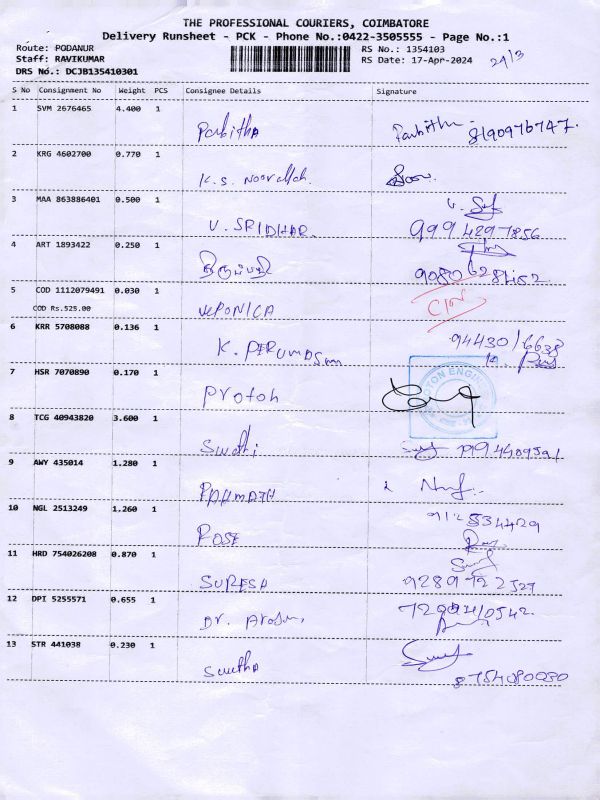 THE PROFESSIONAL COURIERS, COIMBATORE
Delivery Runsheet - PCK - Phone No.:0422-3505555 - Page No.:1
Route: PODANUR RS No.: 1354103
Staff: RAVIKUMAR RS Date: 17-Apr-2024
DRS No.: DCJB135410301
S No Consignment No Weight PCS Consignee Details Signature
1 SVM 2676465 4.400 1
Parbitha Parbitha 8190976747.
2 KRG 4602700 0.770 1
K.S. Noorullah.
3 MAA 863886401 0.500 1
V. SRIDHAR. 9994297856
4 ART 1893422 0.250 1
திருப்பதி
5 COD 1112079491 0.030 1
COD Rs.525.00
VERONICA
6 KRR 5708088 0.136 1
94430/6638
7 HSR 7070890 0.170 1
Protoh
8 TCG 40943820 3.600 1
Swathi
9 AWY 435014 1.280 1
RAHMATH
10 NGL 2513249 1.260 1
ROSE
11 HRD 754026208 0.870 1
SURESH 9289722527
12 DPI 5255571 0.655 1
Dr.
13 STR 441038 0.230 1
Swetha 8754080030